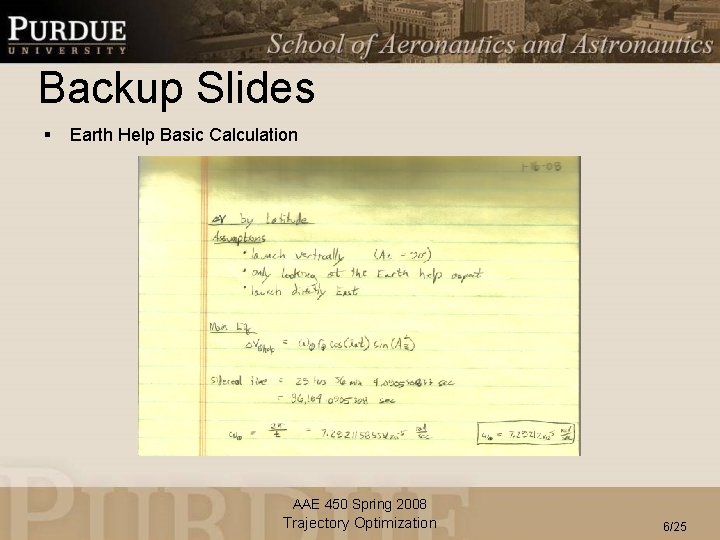 PURDUE
UNIVERSITY
School of Aeronautics and Astronautics
Backup Slides
▪ Earth Help Basic Calculation
1-16-08
ΔV by Latitude
Assumptions
• launch vertically (Az = 90°)
• only looking at the Earth help aspect
• launch directly East
Main Eq
ΔV = ω r cos(lat) sin(Az)
sidereal time = 23 hrs 56 min 4.0905 sec
= 86,164.0905 sec
ω = 2π/t = rad/sec
rad/sec
PURDUE
AAE 450 Spring 2008
Trajectory Optimization
6/25